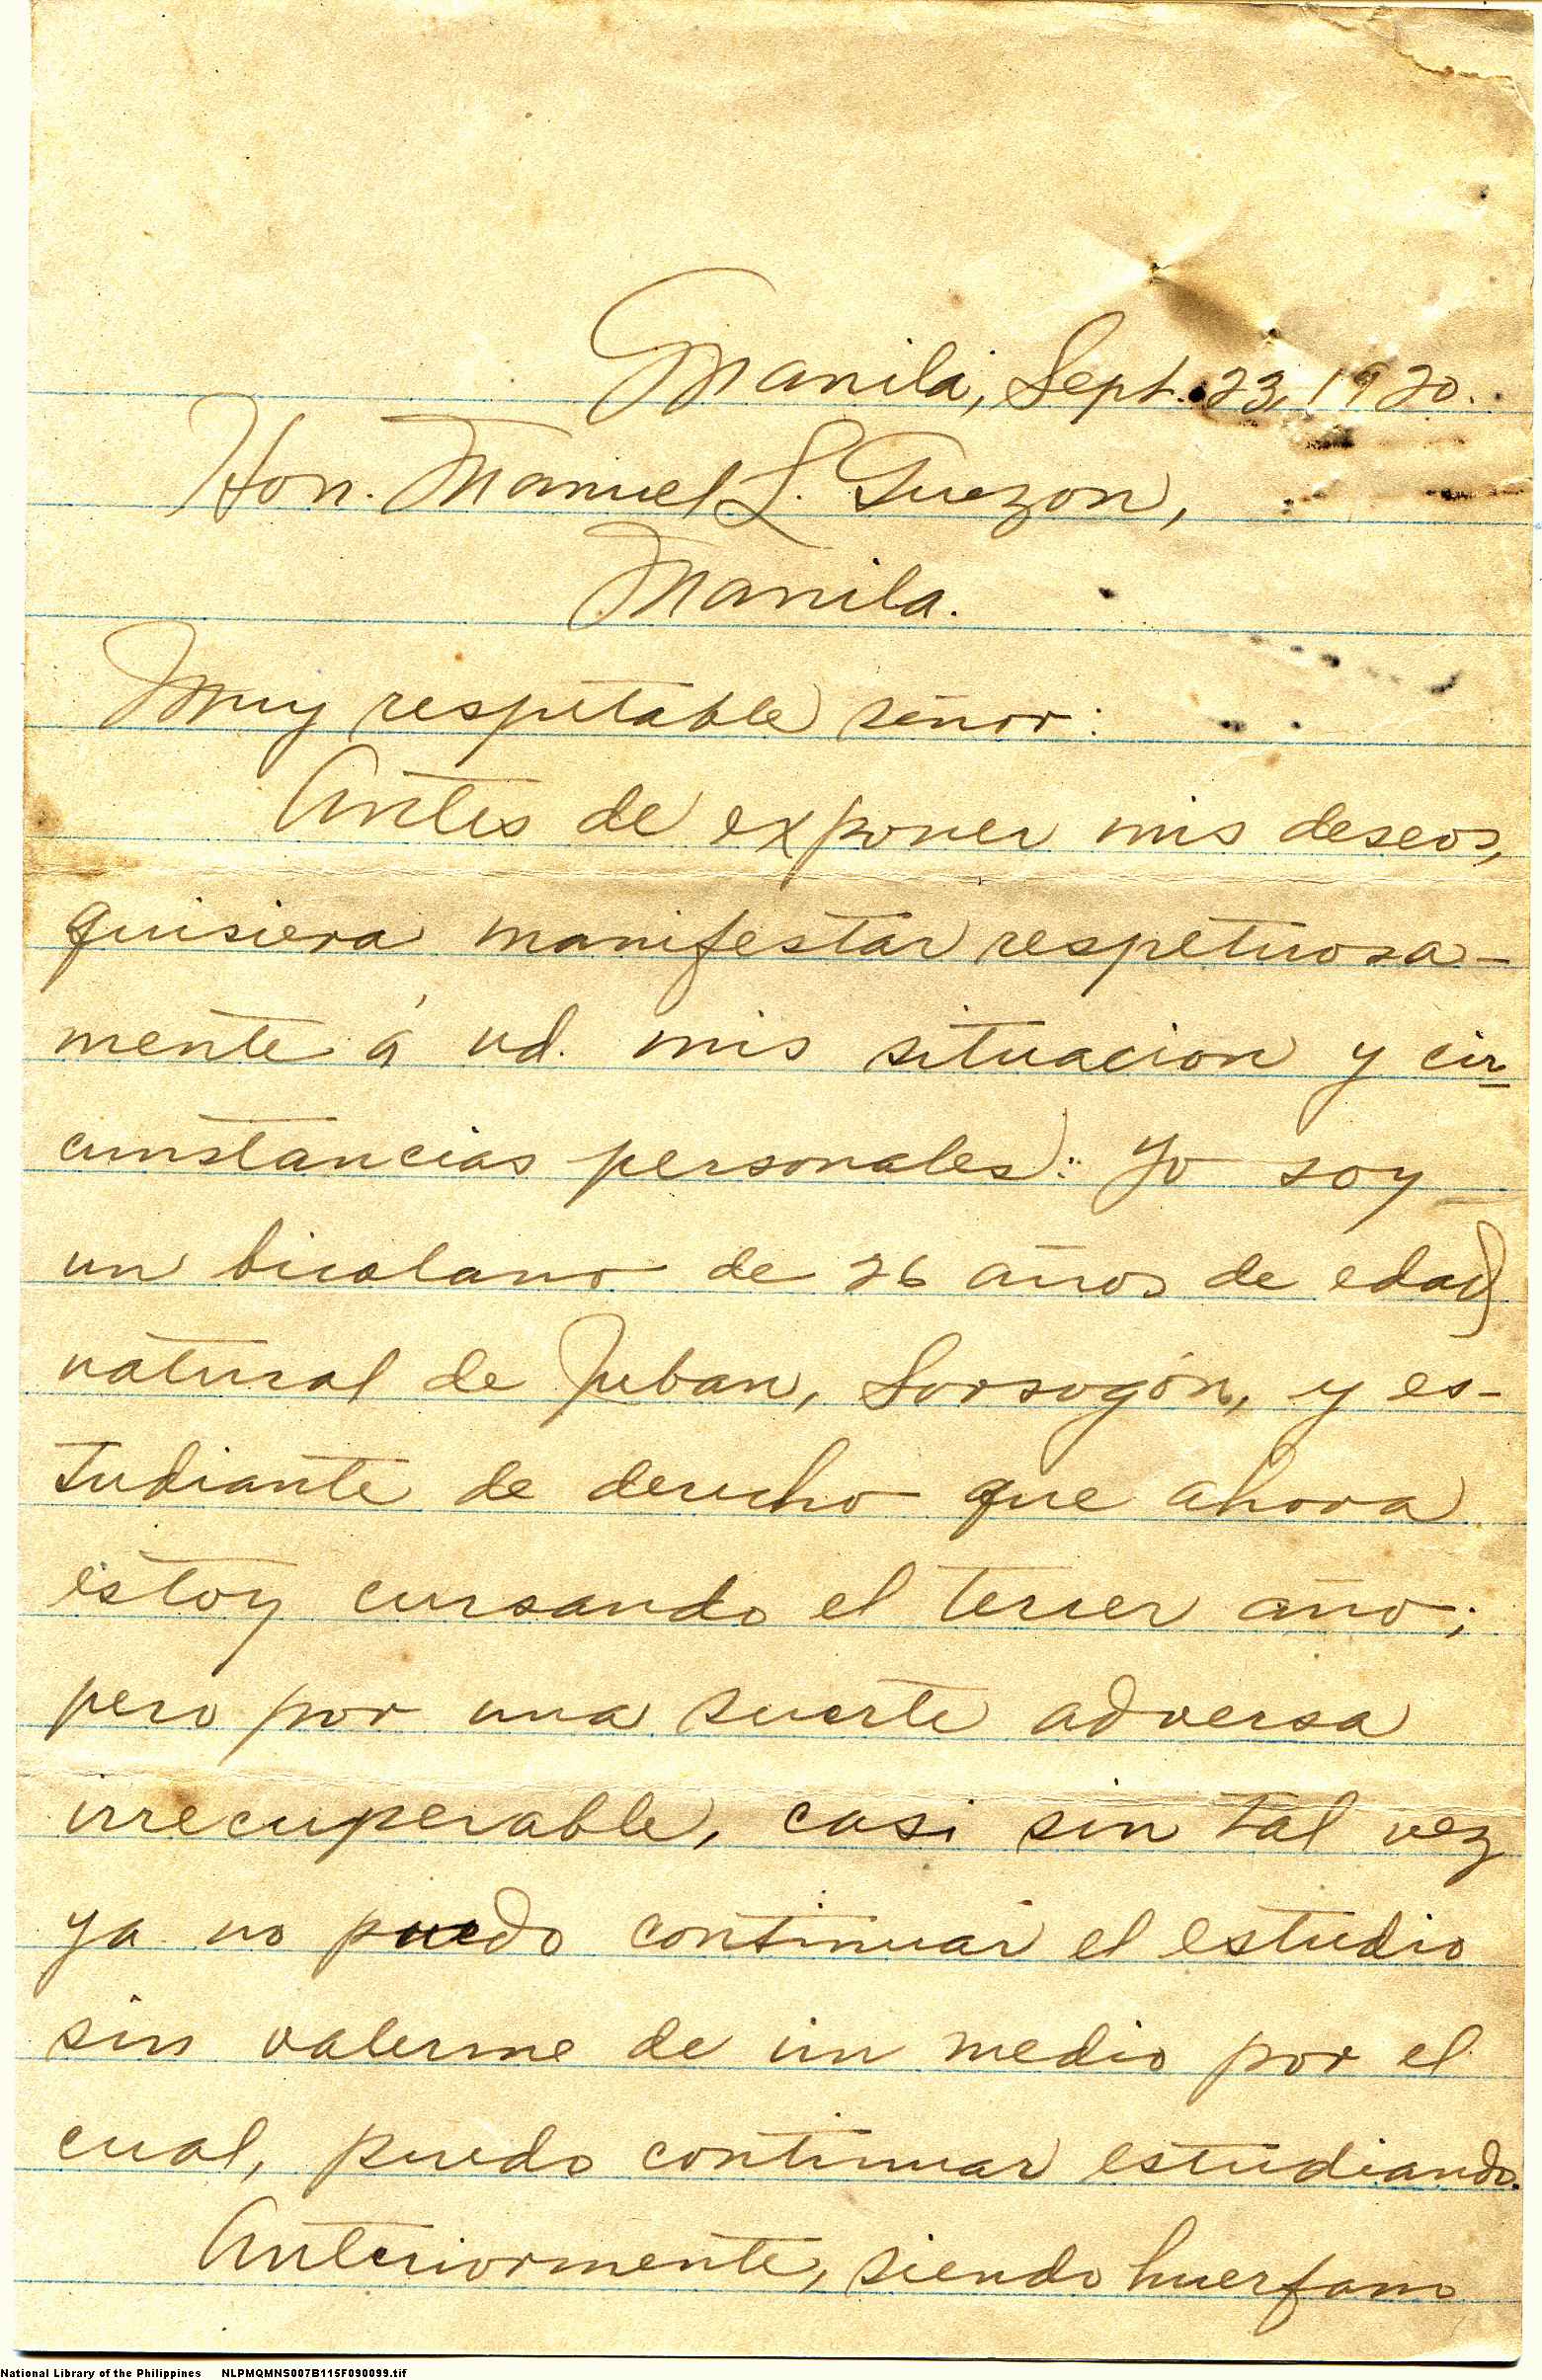 Manila, Sept. 23, 1920.
Hon. Manuel L. Quezon,
Manila.
Muy respetable señor:
Antes de exponer mis deseos,
quisiera manifestar respetuosa-
mente á vd. mis situacion y cir-
cunstancias personales: Yo soy
un bicolano de 26 años de edad,
natural de Juban, Sorsogón, y es-
tudiante de derecho que ahora
estoy cursando el tercer año;
pero por una suerte adversa
irrecuperable, casi sin tal vez
ya no puedo continuar el estudio
sin valerme de un medio por el
cual, puedo continuar estudiando.
Anteriormente, siendo huerfano
National Library of the Philippines NLPMQMNS007B115F090099.tif